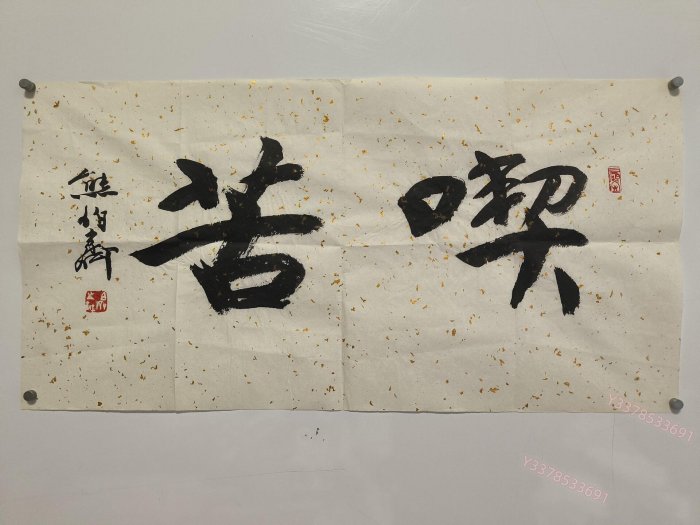 喫苦
熊伯齊
Y3378533691
Y3378533691